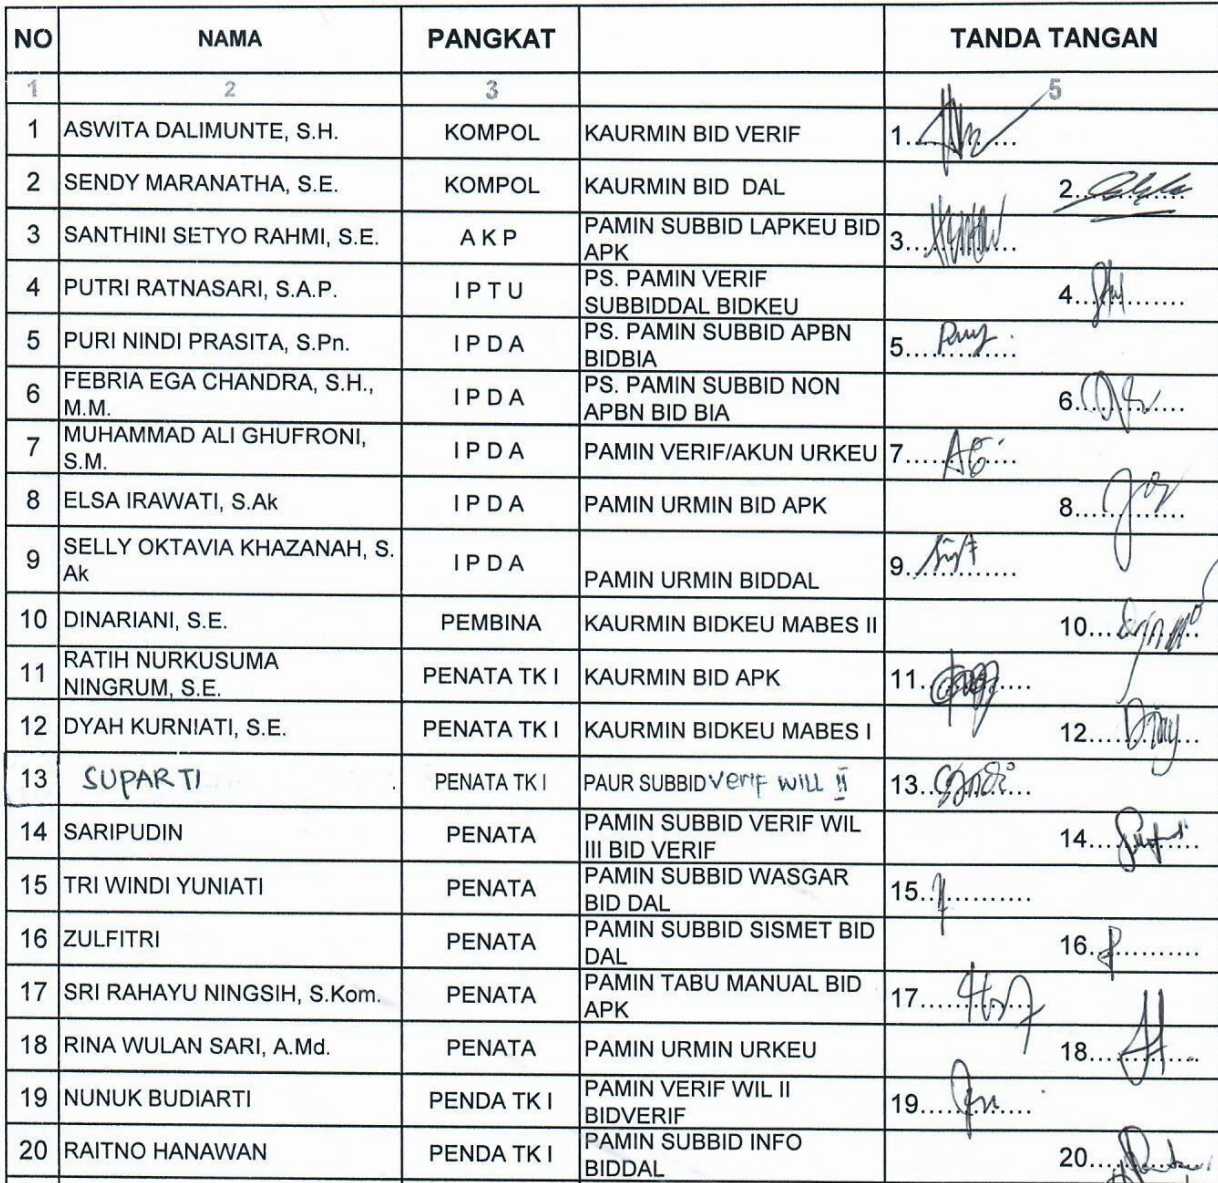 NO NAMA PANGKAT TANDA TANGAN
1 2 3 5
1 ASWITA DALIMUNTE, S.H. KOMPOL KAURMIN BID VERIF 1.........
2 SENDY MARANATHA, S.E. KOMPOL KAURMIN BID DAL 2.........
3 SANTHINI SETYO RAHMI, S.E. A K P PAMIN SUBBID LAPKEU BID
APK 3.........
4 PUTRI RATNASARI, S.A.P. I P T U PS. PAMIN VERIF
SUBBIDDAL BIDKEU 4.........
5 PURI NINDI PRASITA, S.Pn. I P D A PS. PAMIN SUBBID APBN
BIDBIA 5.........
6 FEBRIA EGA CHANDRA, S.H.,
M.M. I P D A PS. PAMIN SUBBID NON
APBN BID BIA 6.........
7 MUHAMMAD ALI GHUFRONI,
S.M. I P D A PAMIN VERIF/AKUN URKEU 7.........
8 ELSA IRAWATI, S.Ak I P D A PAMIN URMIN BID APK 8.........
9 SELLY OKTAVIA KHAZANAH, S.
Ak I P D A PAMIN URMIN BIDDAL 9.........
10 DINARIANI, S.E. PEMBINA KAURMIN BIDKEU MABES II 10.........
11 RATIH NURKUSUMA
NINGRUM, S.E. PENATA TK I KAURMIN BID APK 11.........
12 DYAH KURNIATI, S.E. PENATA TK I KAURMIN BIDKEU MABES I 12.........
13 SUPARTI PENATA TK I PAUR SUBBID VERIF WILL II 13.........
14 SARIPUDIN PENATA PAMIN SUBBID VERIF WIL
III BID VERIF 14.........
15 TRI WINDI YUNIATI PENATA PAMIN SUBBID WASGAR
BID DAL 15.........
16 ZULFITRI PENATA PAMIN SUBBID SISMET BID
DAL 16.........
17 SRI RAHAYU NINGSIH, S.Kom. PENATA PAMIN TABU MANUAL BID
APK 17.........
18 RINA WULAN SARI, A.Md. PENATA PAMIN URMIN URKEU 18.........
19 NUNUK BUDIARTI PENDA TK I PAMIN VERIF WIL II
BIDVERIF 19.........
20 RAITNO HANAWAN PENDA TK I PAMIN SUBBID INFO
BIDDAL 20.........